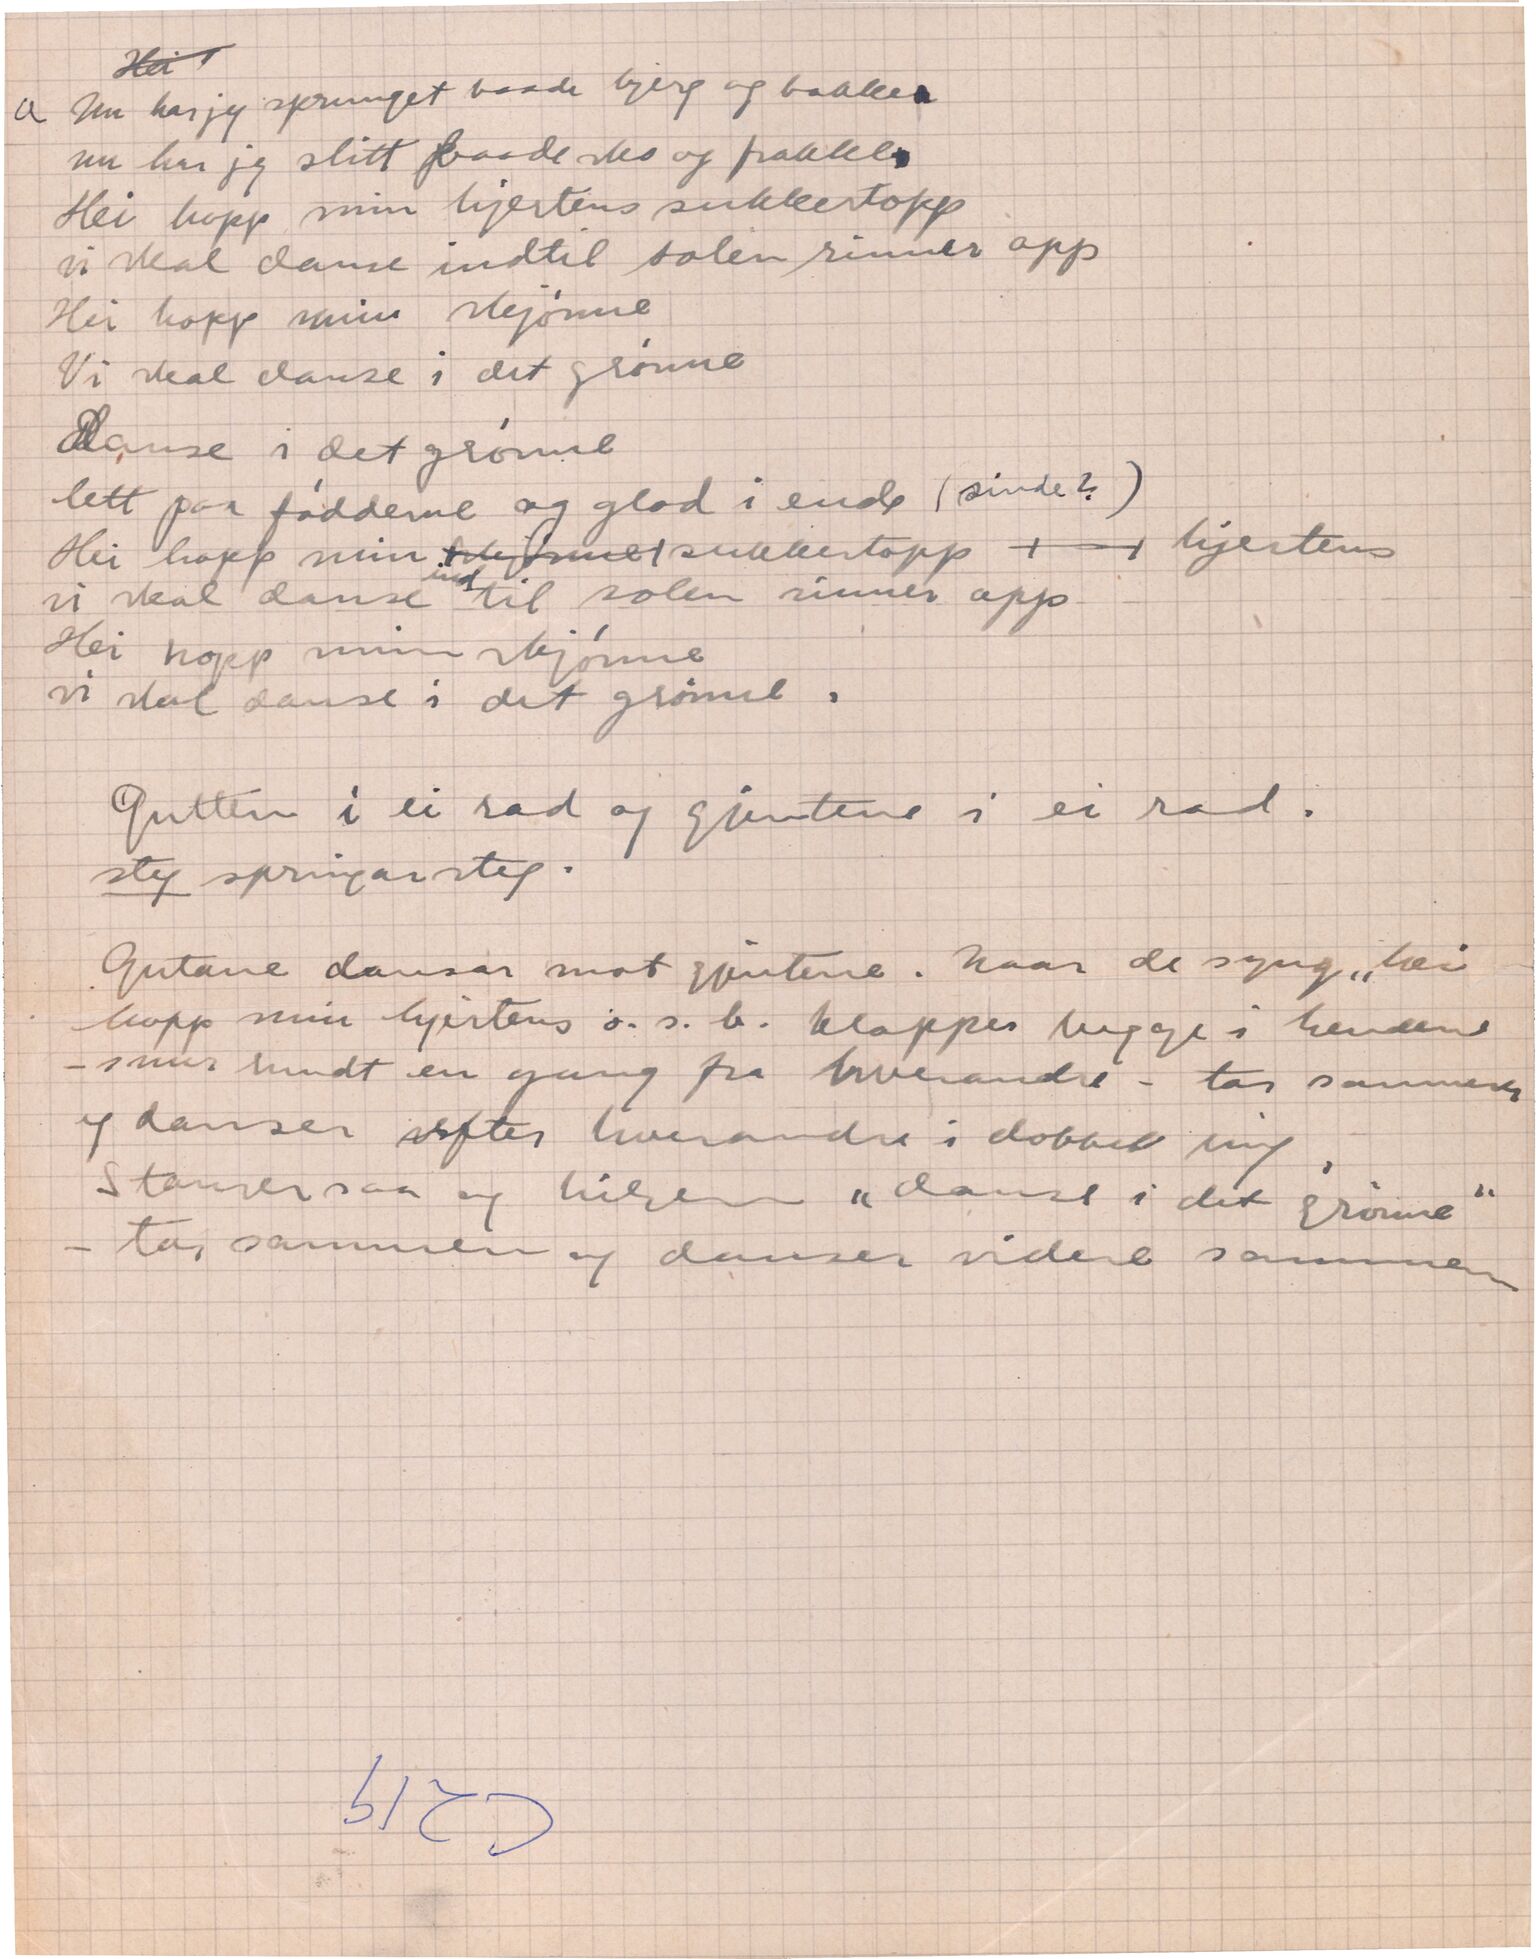 Hei
a Nu har jeg sprunget baade bjerg og bakke
nu har jeg slitt baade sko og frakke
Hei hopp min hjertens sukkertopp
vi skal danse indtil solen rinner opp
Hei hopp min skjønne
Vi skal danse i det grønne
Danse i det grønne
lett paa fødderne og glad i ende (sinde?)
Hei hopp min skjønne sukkertopp hjertens
vi skal danse indtil solen rinner opp
Hei hopp min skjønne
vi skal danse i det grønne.
Guttern i ei rad og gjentene i ei rad.
steg springarsteg.
Gutane dansar mot gjentene. Naar de syng „hei
hopp min hjertens o. s. b. klapper begge i hendene
- snur rundt en gang fra hverandre - tar sammen
og danser efter hverandre i dobbelt ring,
Stanser saa og hilser „danse i det grønne"
- tar sammen og danser videre sammen
C219